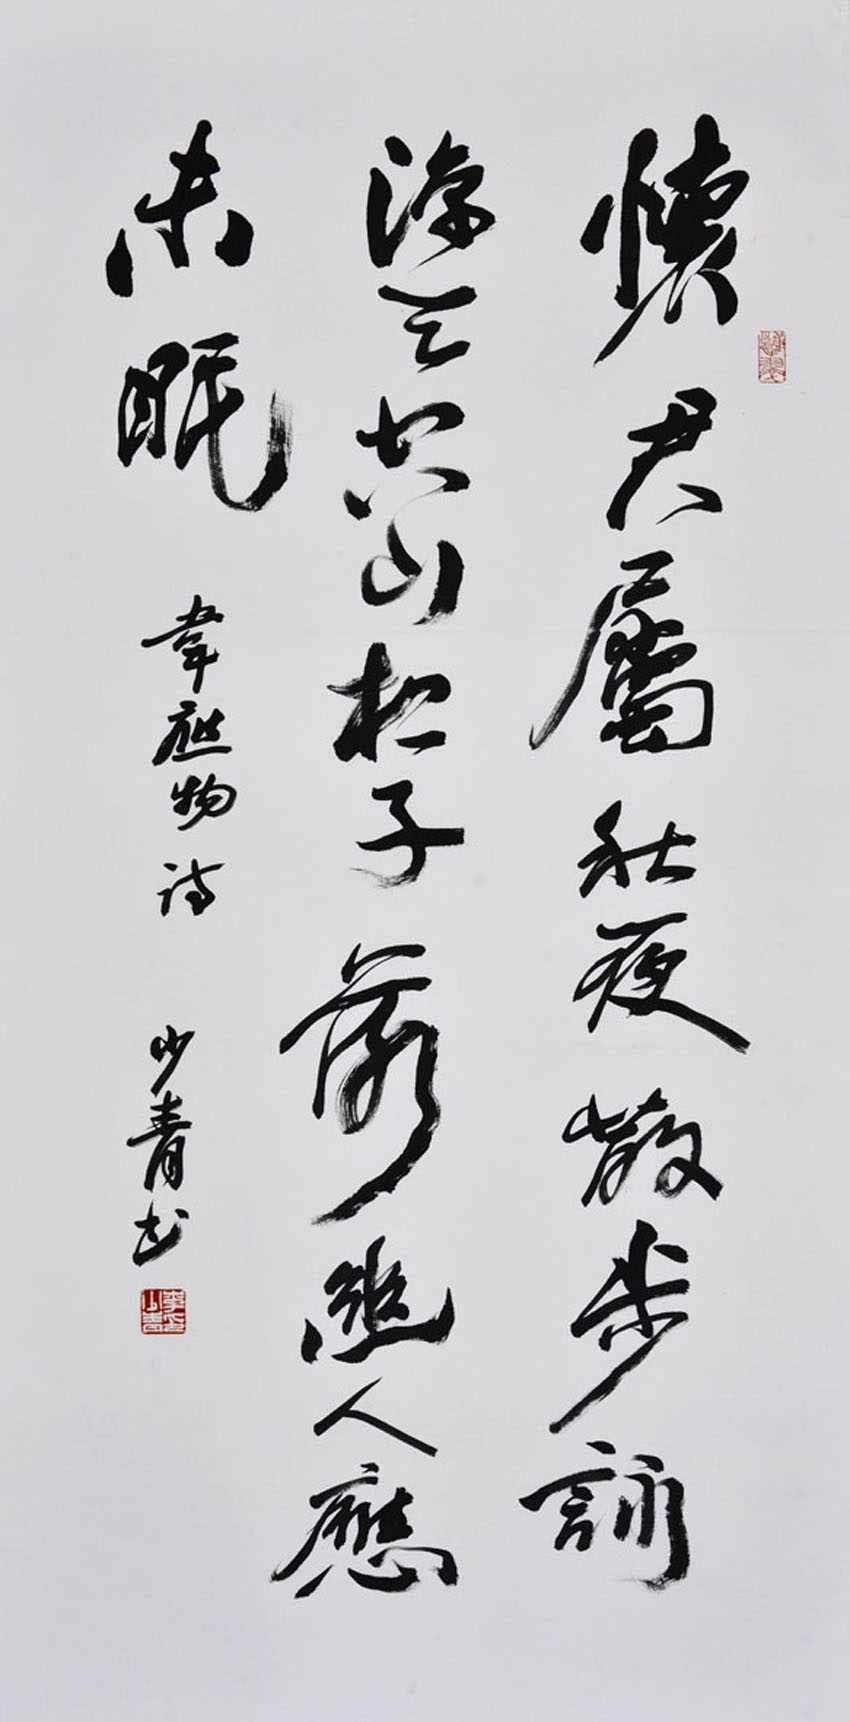 懷君屬秋夜散步詠
涼天空山松子落幽人應
未眠
韋應物诗 少青书
李少青